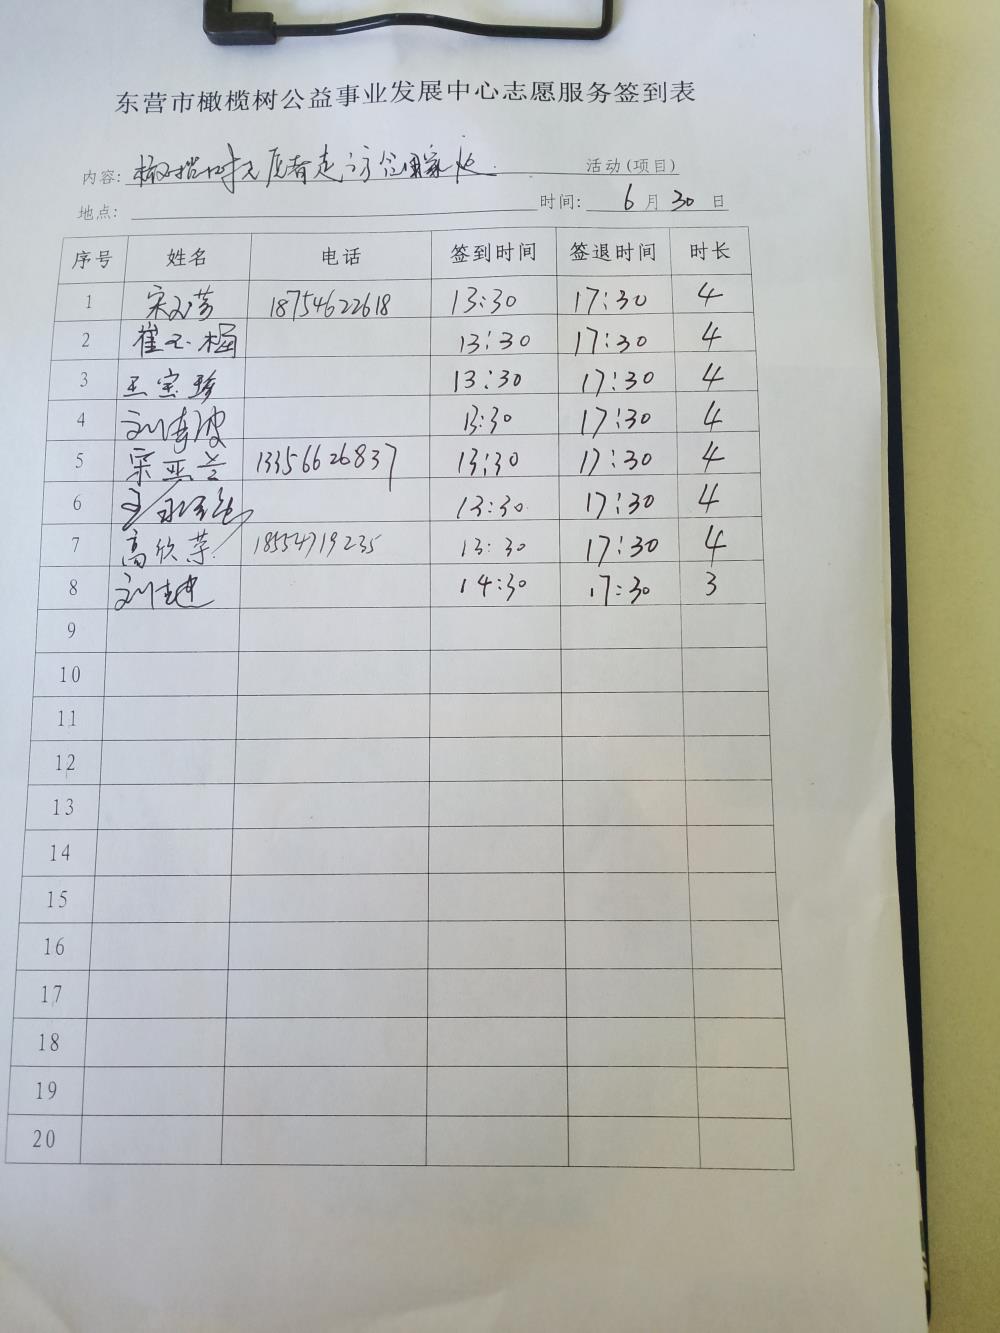 东营市橄榄树公益事业发展中心志愿服务签到表
内容: 橄榄树志愿者走访困难家庭 活动(项目)
地点: 时间: 6 月 30 日
序号 姓名 电话 签到时间 签退时间 时长
1 宋玉芳 18754622618 13:30 17:30 4
2 崔玉梅 13:30 17:30 4
3 王宝珍 13:30 17:30 4
4 13:30 17:30 4
5 宋亚兰 13356626837 13:30 17:30 4
6 13:30 17:30 4
7 高欣荣 18554719235 13:30 17:30 4
8 14:30 17:30 3
9
10
11
12
13
14
15
16
17
18
19
20